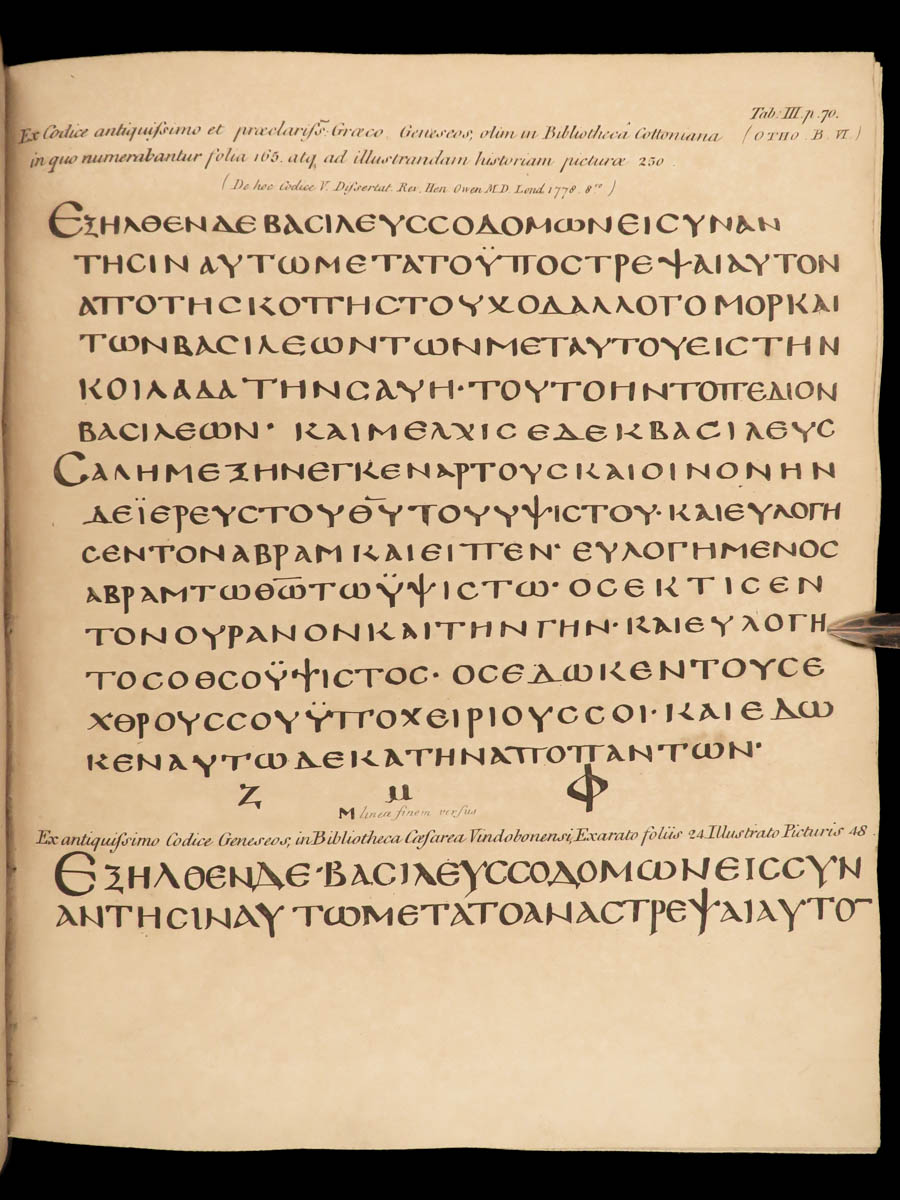 Tab: III. p. 70.
Ex Codice antiquissimo et præclariss: Græco Geneseos, olim in Bibliothecâ Cottoniana ( OTHO . B . VI )
in quo numerabantur folia 165. atq, ad illustrandam historiam picturæ 250 .
( De hoc Codice V. Dissertat. Rev. Hen. Owen M.D. Lond. 1778. 8vo )
ΕΞΗΛΘΕΝΔΕΒΑСΙΛΕΥССΟΔΟΜΩΝΕΙСΥΝΑΝ
ΤΗСΙΝΑΥΤΩΜΕΤΑΤΟΫΠΟСΤΡΕΨΑΙΑΥΤΟΝ
ΑΠΟΤΗСΚΟΠΗСΤΟΥΧΟΔΑΛΛΟΓΟΜΟΡΚΑΙ
ΤΩΝΒΑСΙΛΕΩΝΤΩΝΜΕΤΑΥΤΟΥΕΙСΤΗΝ
ΚΟΙΛΑΔΑΤΗΝСΑΥΗ·ΤΟΥΤΟΗΝΤΟΠΕΔΙΟΝ
ΒΑСΙΛΕΩΝ· ΚΑΙΜΕΛΧΙСΕΔΕΚΒΑСΙΛΕΥС
СΑΛΗΜΕΞΗΝΕΓΚΕΝΑΡΤΟΥСΚΑΙΟΙΝΟΝΗΝ
ΔΕΪΕΡΕΥСΤΟΥΘ̅Υ̅ΤΟΥΥΨΙСΤΟΥ·ΚΑΙΕΥΛΟΓΗ
СΕΝΤΟΝΑΒΡΑΜΚΑΙΕΙΠΕΝ· ΕΥΛΟΓΗΜΕΝΟС
ΑΒΡΑΜΤΩΘ̅Ω̅ΤΩΫΨΙСΤΩ· ΟСΕΚΤΙСΕΝ
ΤΟΝΟΥΡΑΝΟΝΚΑΙΤΗΝΓΗΝ·ΚΑΙΕΥΛΟΓΗ
ΤΟСΟΘСΟΫΨΙСΤΟС· ΟСΕΔΩΚΕΝΤΟΥСΕ
ΧΘΡΟΥССΟΥΫΠΟΧΕΙΡΙΟΥССΟΙ·ΚΑΙΕΔΩ
ΚΕΝΑΥΤΩΔΕΚΑΤΗΝΑΠΟΠΑΝΤΩΝ·
Ζ μ Φ
Μ linea finem versus
Ex antiquissimo Codice Geneseos, in Bibliotheca Cæsarea Vindobonensi, Exarato foliis 24. Illustrato Picturis 48 .
ΕΞΗΛΘΕΝΔΕ·ΒΑСΙΛΕΥССΟΔΟΜΩΝΕΙССΥΝ
ΑΝΤΗСΙΝΑΥΤΩΜΕΤΑΤΟΑΝΑСΤΡΕΨΑΙΑΥΤΟ̅